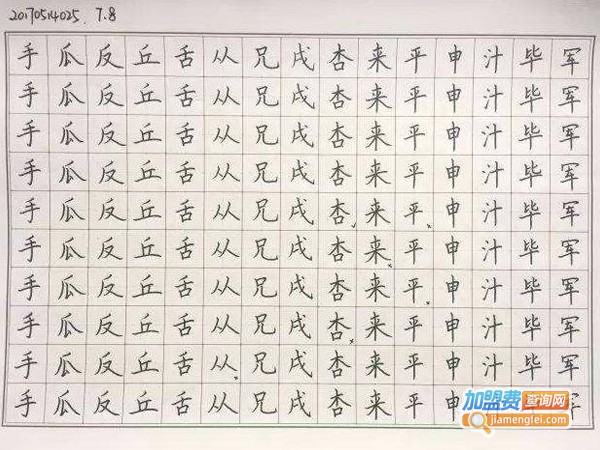 20170514025. 7.8
手瓜反丘舌从兄戌杏来平申汁毕军
手瓜反丘舌从兄戌杏来平申汁毕军
手瓜反丘舌从兄戌杏来平申汁毕军
手瓜反丘舌从兄戌杏来平申汁毕军
手瓜反丘舌从兄戌杏来平申汁毕军
手瓜反丘舌从兄戌杏来平申汁毕军
手瓜反丘舌从兄戌杏来平申汁毕军
手瓜反丘舌从兄戌杏来平申汁毕军
手瓜反丘舌从兄戌杏来平申汁毕军
手瓜反丘舌从兄戌杏来平申汁毕军
加盟费查询网
jiamengfei.com